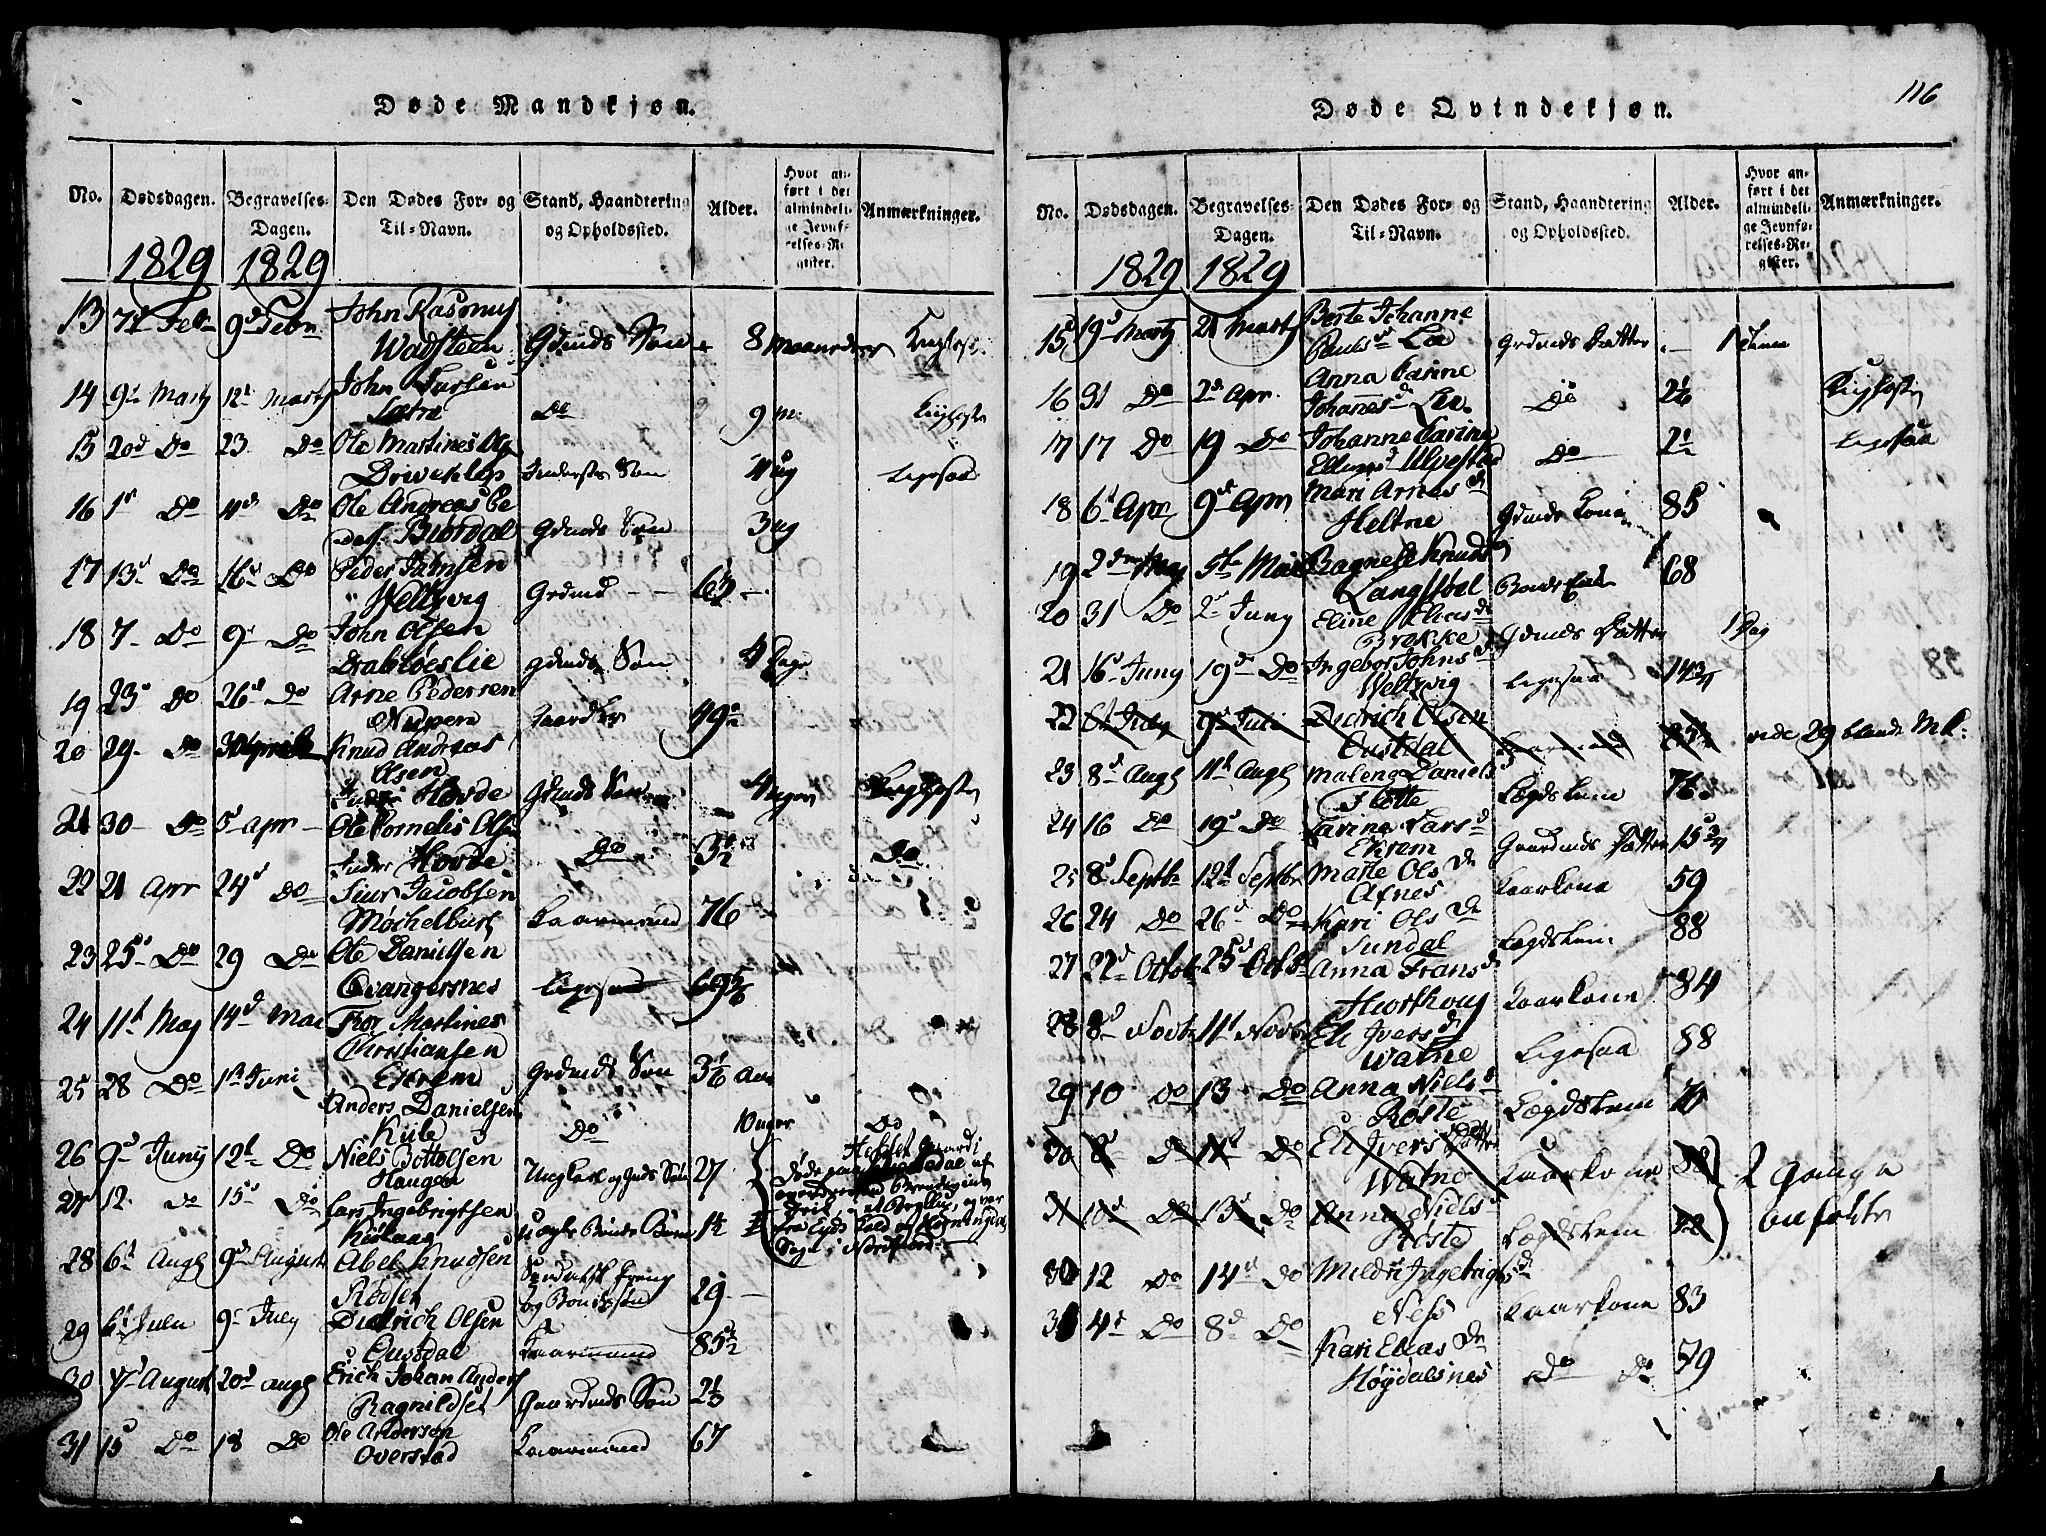 Døde Mandkjøn.
No. Dødsdagen. Begravelses-Dagen. Den Dødes For- og Til-Navn. Stand, Haandtering og Opholdssted. Alder. Hvor anført i det almindelige Jevnførelses-Register. Anmærkninger.
1829 1829
13 7d Febr 9d Febr John Rasmus
Wadsteen Gdmds Søn 8 Maaneder Kighoste
14 9d Marty 12d Marty John Larsen
Sætre Do 9 m: Kighoste
15 20d Do 23 Do Ole Martines Ols
Driveklep Inderstes Søn 4 ug Ligesaa
16 1d Do 4d Do Ole Andreas Pe
ders: Biørdal Gdmds Søn 3 ug
17 13d Do 16d Do Peder Jamsen
Weltzvig Grdmd 6
18 7 Do 9d Do John Olsen
Drabløeslie Gdmds Søn 4 Dage
19 23d Do 26d Do Arne Pedersen
Nupen 49
20 29 Do 3 Aprile Knud Andreas
Olsen
Indre Hovde Gdmds Søn 4 uger Kighoste
21 30 Do 5 apr Ole Cornelis Olsen
Indre Hovde Do 3½ Do
22 21 Apr 24d Do Siur Jacobsen
Møchelbust Kaarmand 76
23 25d Do 29 Do Ole Danielsen
Qvangersnes Ligesaa 69
24 11d May 14d Mai Thor Martines
Christiansen
Ekrem Grdmds Søn 3 Aar
25 28 Do 1d Juni Anders Danielsen
Kiile Do 10 uger Do
26 9d Juny 12d Do Niels Bottolsen
Haugen Ungkarl og Gmds Søn 27
27 12 Do 15d Do Lars Ingebrigtsen
Kiilaag 1½
28 6d Augt 9d August Abel Knudsen
Rødset og Bondesøn 29
29 6d Julii 9d July Diedrich Olsen
Oustdal Kaarmand 85½
30 17d August 20d augt Erich Johan Anders
Ragnildset Gaardmds Søn 2½
31 15 Do 18 Do Ole Anderson
Overstad Kaarmand 67
116
Døde Qvindekjøn.
No. Dødsdagen. Begravelses-Dagen. Den Dødes For- og Til-Navn. Stand, Haandtering og Opholdssted. Alder. Hvor anført i det almindelige Jevnførelses-Register. Anmærkninger.
1829 1829
15 19d Marty 21 Marty Berte Johanne
Poulsd Lea Grdmds Datter 1 Time
16 31 Do 2d Apr. Anna Carine
Johannesd Lea Do 2 Kighoste
17 17 Do 19 Do Johanne Carine
Ellingsd Ulvestad Do 2 Ligesaa
18 6d Apr 9d Apr Mari Arnesd
Heltne Gdmds Kone 85
19 2den May 5te Mai Ragnele Knuds
Langstøl Bonde Enke 68
20 31 Do 2d Juny Eline Eliasd
Brekke Gdmds Datter 1 Dag
21 16d Juny 19d Do Ingebor Johnsd
Weltzvig Ligesaa 14¾
22 6d July 9d Juli Diedrich Olsen
Oustdal Kaarmand 85½ vide 29 blandt MK:
23 8d Augt 11d Augt Malena Daniels
Flotte Lægdslem 76
24 16 Do 19d Do Carina Larsd
Ekrem Gaardmds Datter 15¾
25 8d Septbr 12d Septbr Marte Olsd
Afnes Kaarkone 59
26 24 Do 26d Do Kari Olsd
Sundal Lægdslem 88
27 22d Octob 25d Octob Anna Fransd
Hiorthoug Kaarkone 84
28 8d Novbr 11d Novbr Eli Iversd
Watne Ligesaa 88
29 10 Do 13 Do Anna Nielsd
Røste Lægdslem 70
30 8d Do 11d Do Eli Ivers Datter
Watne Kaarkone 88 2 gange
31 10d Do 13d Do Anna Nielsd
Røste Lægdslem anførte
30 12 Do 14d Do Mildri Ingebrigtsd
Ness Kaarkone 83
31 4d Do 8d Do Kari Elias Dr
Høydalsnes Do Do 79